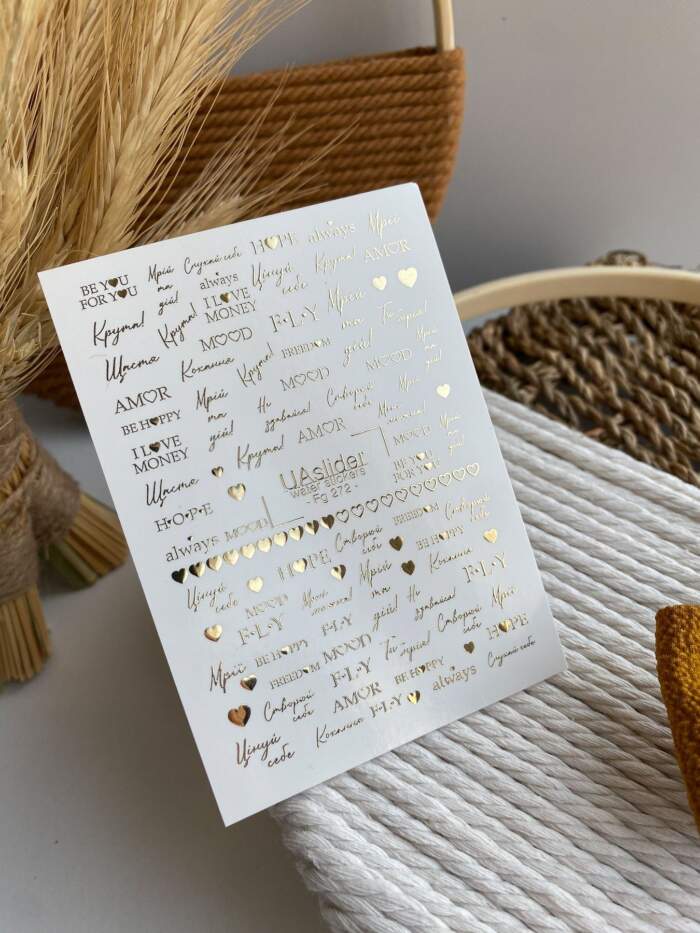 BE YOU
FOR YOU
Мрій
та
дій!
Слухай себе
HOPE
always
Мрій
always
I LOVE
MONEY
Цінуй
себе
Крута!
AMOR
Крута!
Крута!
MOOD
F·L·Y
Мрій
та
дій!
Ти
мрія!
Щастя
Кохання
Крута!
FREEDOM
MOOD
MOOD
AMOR
Мрій
та
дій!
Не
здавайся!
Створюй
себе
BE HAPPY
I LOVE
MONEY
Крута!
AMOR
MOOD
Щастя
UAslider
water stickers
- Fg 272 -
BE YOU
FOR YOU
H·O·P·E
always
MOOD
Створюй
себе
FREEDOM
Створюй
себе
Цінуй
себе
HOPE
BE HAPPY
MOOD
Мрій
та
дій!
Кохання
F·L·Y
F·L·Y
F·L·Y
Не
здавайся!
Мрій
BE HAPPY
MOOD
Ти
мрія!
Створюй
себе
HOPE
FREEDOM
F·L·Y
BE HAPPY
Слухай себе
Створюй
себе
AMOR
always
Цінуй
себе
Кохання
F·L·Y